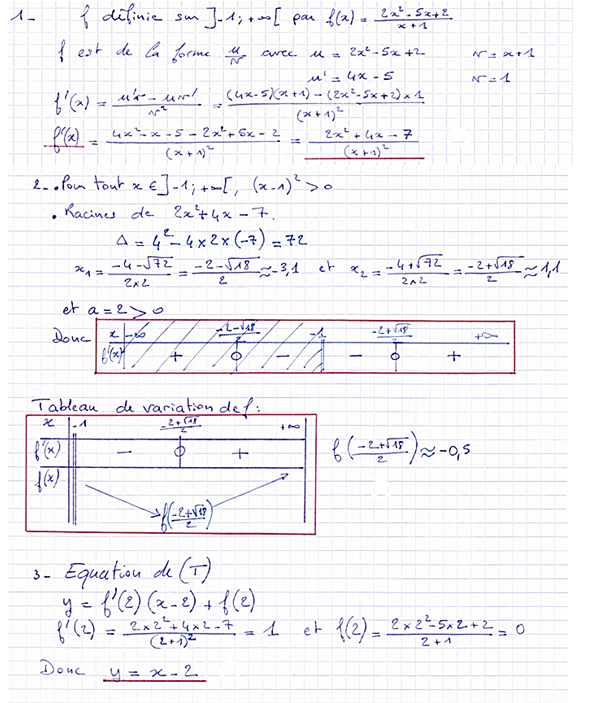 1- f définie sur ]-1; +∞[ par f(x) = (2x²-5x+2)/(x+1)
f est de la forme u/v avec u = 2x²-5x+2 v = x+1
u' = 4x-5 v = 1
f'(x) = (u'v - uv')/v² = ((4x-5)(x+1) - (2x²-5x+2)×1)/(x+1)²
f'(x) = (4x²-x-5-2x²+5x-2)/(x+1)² = (2x²+4x-7)/(x+1)²
2-. Pour tout x ∈ ]-1; +∞[, (x-1)² > 0
• Racines de 2x²+4x-7.
Δ = 4²-4×2×(-7) = 72
x₁ = (-4-√72)/(2×2) = (-2-√18)/2 ≈ -3,1 et x₂ = (-4+√72)/(2×2) = (-2+√18)/2 ≈ 1,1
et a = 2 > 0
Donc x -∞ (-2-√18)/2 -1 (-2+√18)/2 +∞
f'(x) + 0 - - 0 +
Tableau de variation de f:
x -1 (-2+√18)/2 +∞
f'(x) - 0 + f((-2+√18)/2) ≈ -0,5
f(x)
f((-2+√18)/2)
3- Equation de (T)
y = f'(2)(x-2) + f(2)
f'(2) = (2×2²+4×2-7)/(2+1)² = 1 et f(2) = (2×2²-5×2+2)/(2+1) = 0
Donc y = x-2